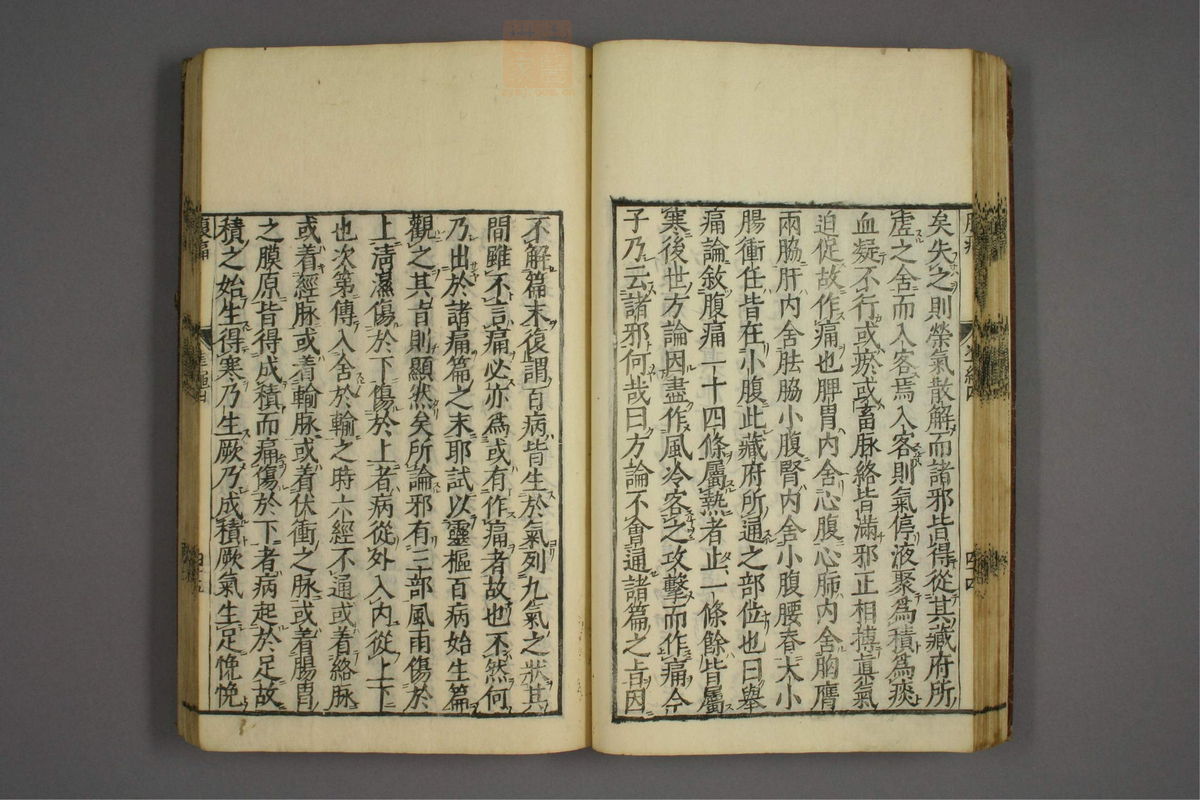 矣失之則榮氣散解而諸邪皆得從其臓府所
虚之舍而入客焉入客則氣停液聚爲積爲痰
血凝不行或瘀或畜脉絡皆滿邪正相搏眞氣
迫促故作痛也脾胃内舍心腹心肺内舍胸膺
兩脇肝内舍胠脇小腹腎内舍小腹腰脊大小
腸衝任皆在小腹此藏府所通之部位也曰舉
痛論敘腹痛一十四條屬熱者止一條餘皆屬
寒後世方論因盡作風冷客之攻擊而作痛今
子乃云諸邪何哉曰方論不會通諸篇之旨因
不解篇末復謂百病皆生於氣列九氣之狀其
間雖不言痛必亦爲或有作痛者故也不然何
乃出於諸痛篇之末耶試以靈樞百病始生篇
觀之其旨則顯然矣所論邪有三部風雨傷於
上清濕傷於下傷於上者病從外入内從上下
也次第傳入舍於輸之時六經不通或着絡脉
或着經脉或着輸脉或着伏衝之脉或着腸胃
之膜原皆得成積而痛傷於下者病起於足故
積之始生得寒乃生厥乃成積厥氣生足悗悗